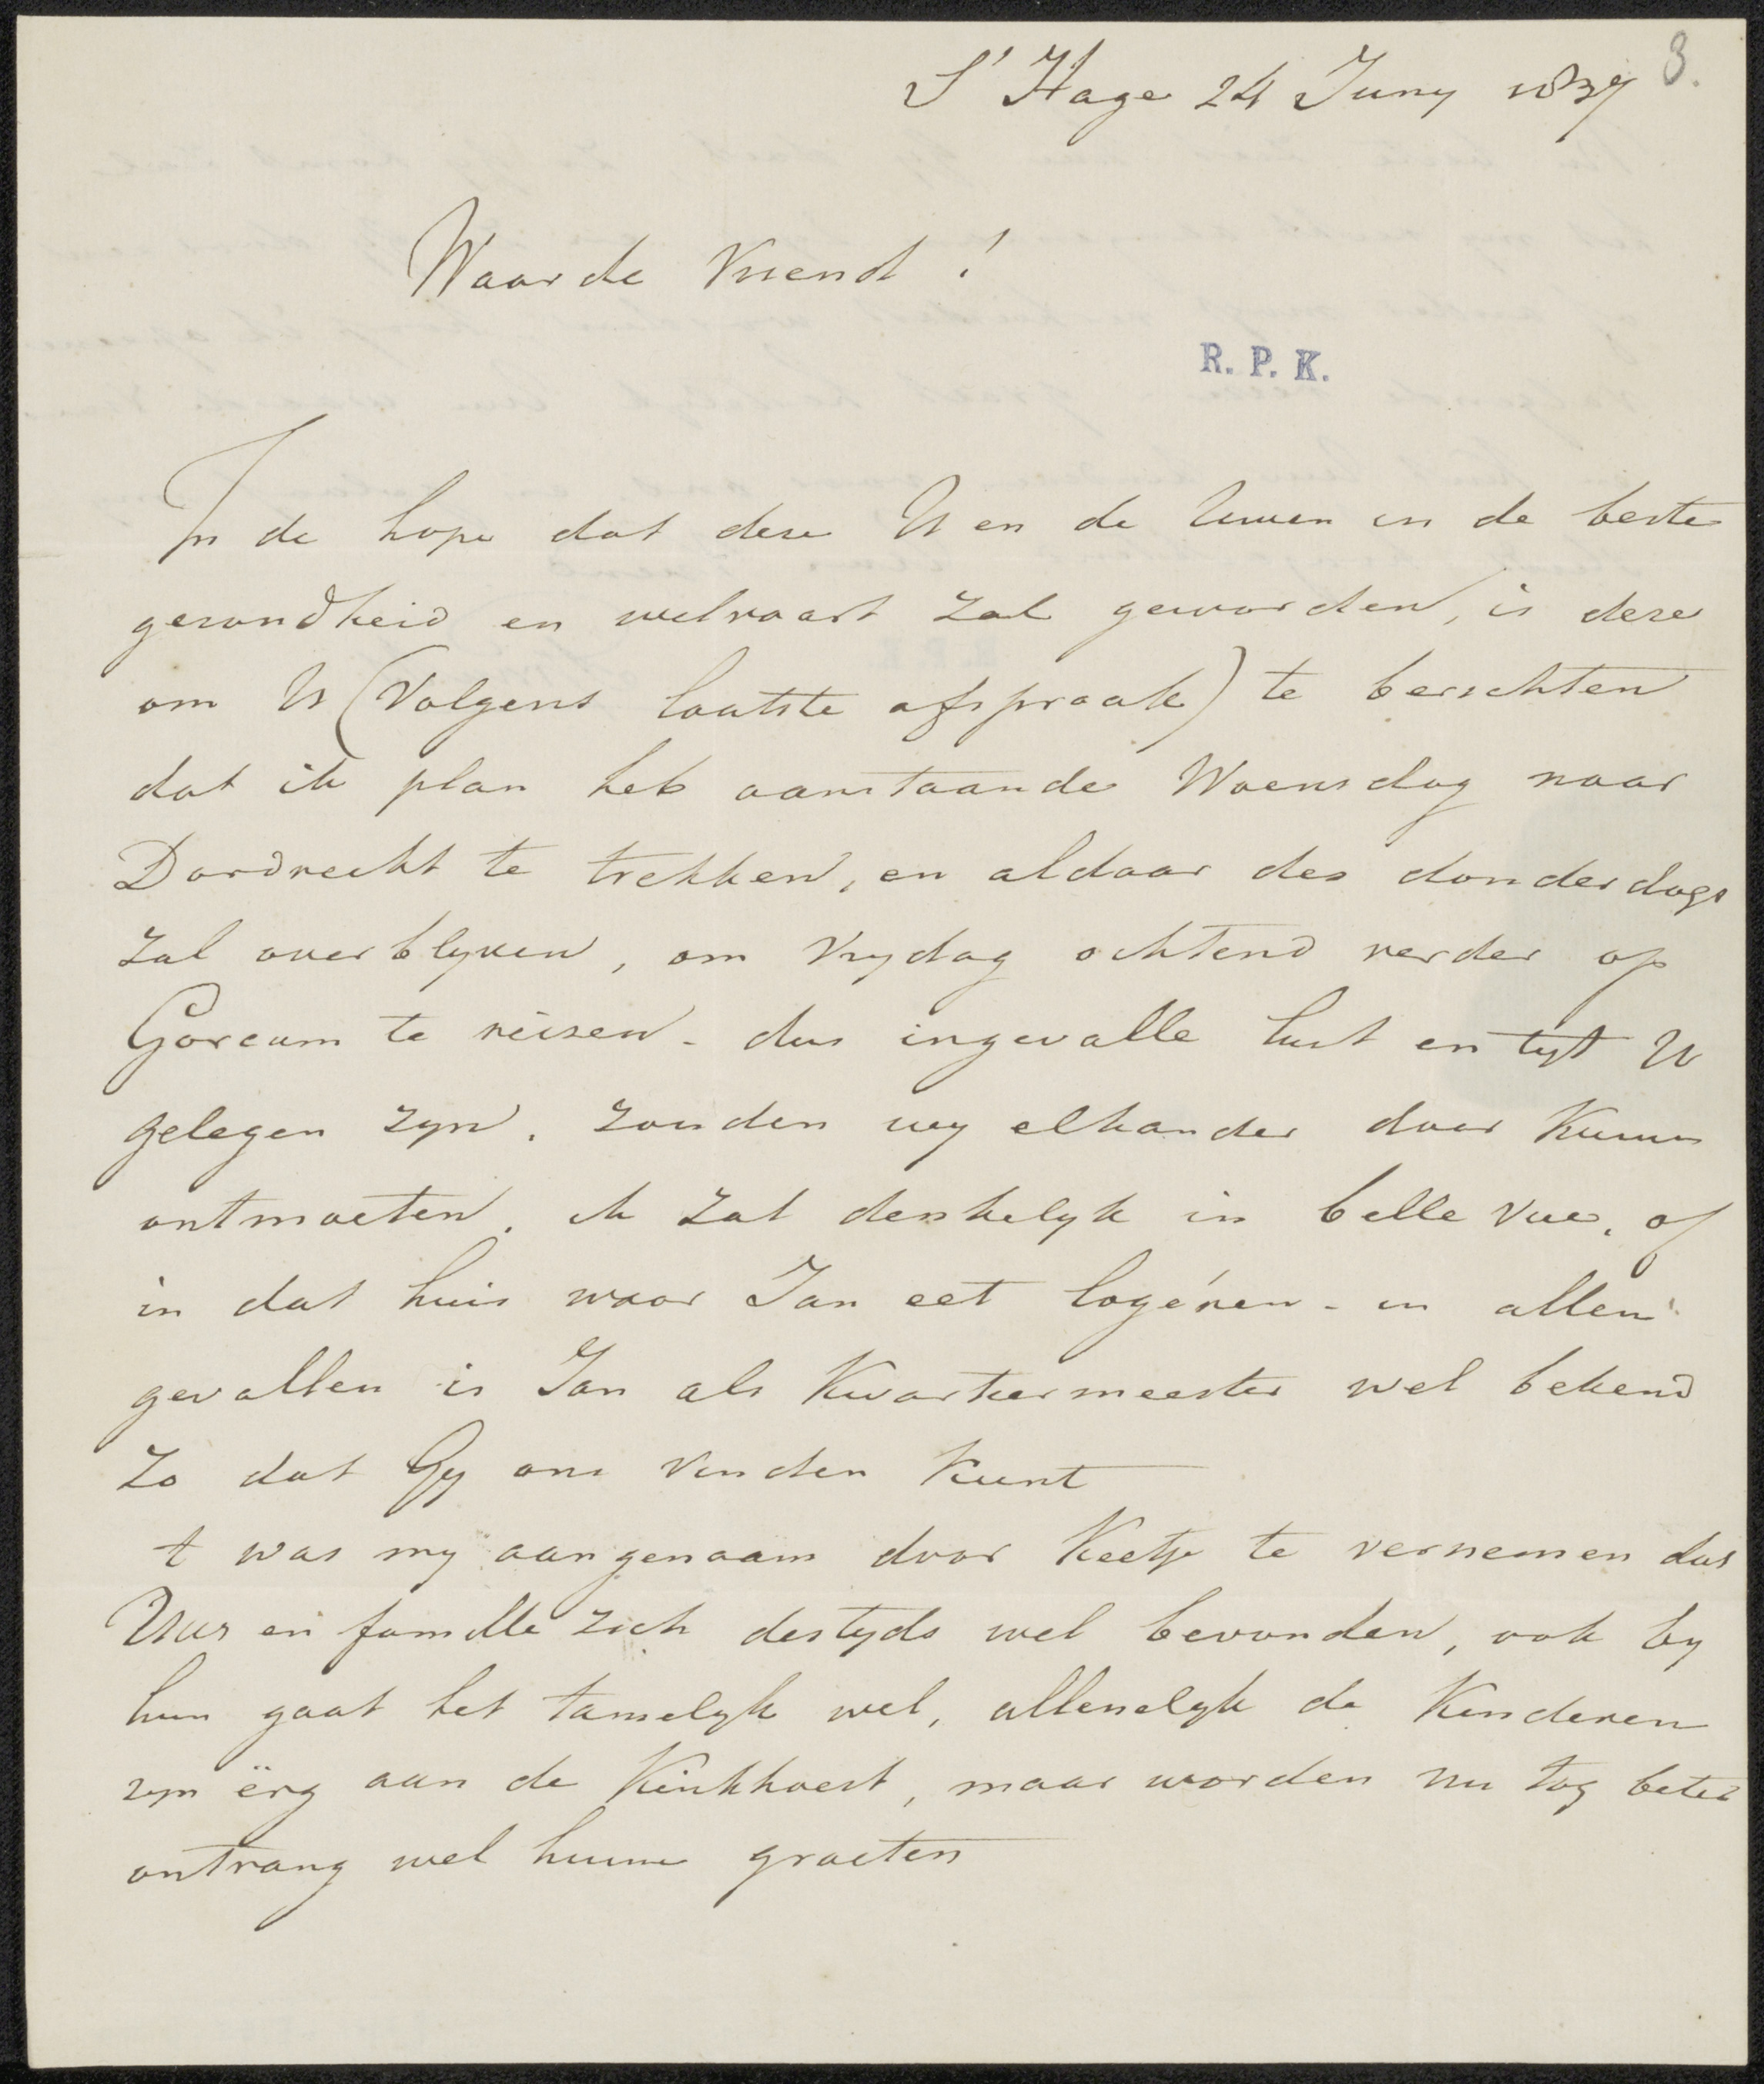 S' Hage 24 Juny 1839
3.
Waarde Vriend !
R. P. K.
In de hope dat deze U en de Uwen in de beste
gezondheid en welvaart zal geworden, is deze
om U (volgens laatste afspraak) te berichten
dat ik plan heb aanstaande Woensdag naar
Dordrecht te trekken, en aldaar des donderdags
zal overblyven, om Vrydag ochtend verder op
Gorcum te reizen - dus ingevalle lust en tyt U
gelegen zyn, zouden wy elkander daar Kunnen
ontmoeten, ik zal denkelyk in belle Vue, of
in dat huis waar Jan eet logéren - in allen
gevallen is Jan als Kwartiermeester wel bekend
Zo dat Gy ons Vinden Kunt
t was my aangenaam door Keetje te vernemen dat
en familie zich destyds wel bevonden, ook by
hun gaat het tamelyk wel, allenelyk de Kinderen
zyn ërg aan de Kinkhoest, maar worden nu tog beter
ontvang wel hunne groeten